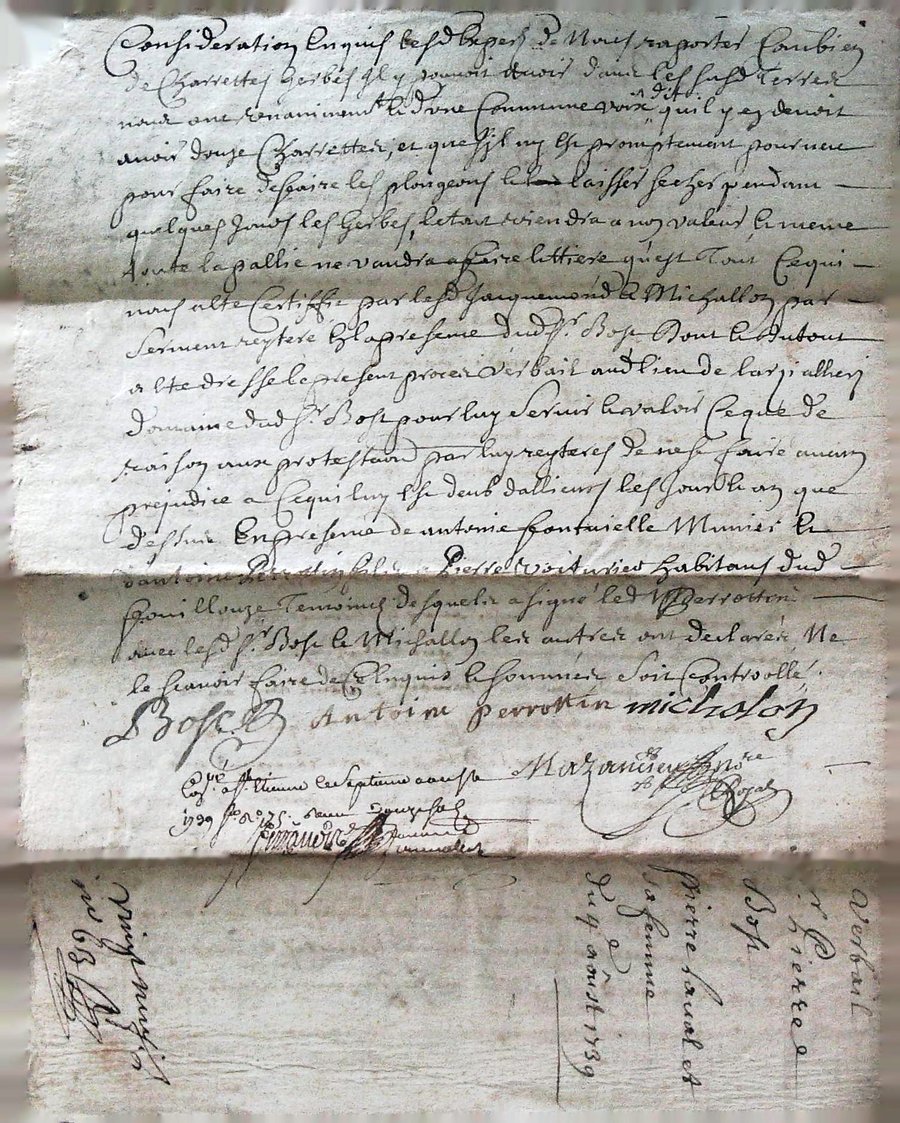 Consideration Enquis lesd Expers de Nous raporter Combien
de Charrettes Gerbes Il y pouvoit Avoir dans les susd Terres
nous ont unanimement et d'une Commune voix dit qu'il y en devoit
avoir douze Charrettes, et que s'il ny Est promptement pourveu
pour faire defaire les plongeons et laisser secher pendant
quelques Jours les Gerbes, le tout viendra a non valeur Et meme
toute la pallie ne vaudra a faire littiere qu'est Tout Ce qui
nous a Eté Certiffié par lesd Jacquemond & Michallon par
Serment reyteré En la presence dud Sr. Bosc Dont Et du tout
a Eté dressé le present procez Verbail aud lieu de
domaine dud Sr. Bosc pour luy Servir Et valoir Ce que de
raison aux protestaõns par luy reyterés de ne se faire aucun
prejudice a Ce qui luy Est deub dallieurs les Jour Et an que
dessus En presence de antoine Munier Et
d'antoine Perrottin fils a Pierre voiturier habitans dud
fouillouze Temoins desquels a signé led Perrottin
avec lesd Sr. Bosc Et Michallon les autres ont declarés Ne
le scavoir faire de Ce Enquis Et Sommés Soit Controllé
Bosc Antoine perrottin michalon
Mazancieu Nõre
Royal
a St. Etienne le Septieme aoust
1739 douze sols
Verbail
Pierre
Bosc
Pierre et
sa femme
du 4 aoust 1739
Vingt neuf